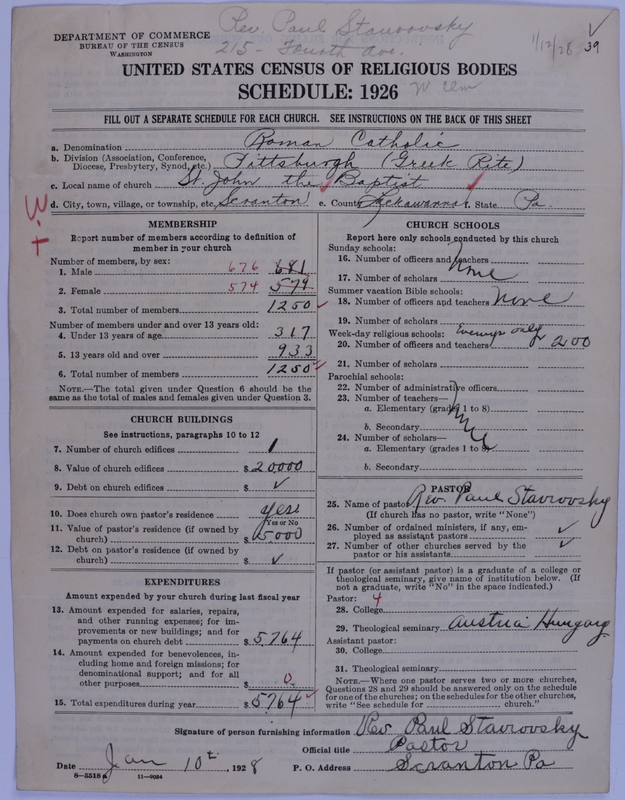 Rev. Paul Stavrovsky
215 - Fourth Ave.
1/12/28
39
DEPARTMENT OF COMMERCE
BUREAU OF THE CENSUS
WASHINGTON
UNITED STATES CENSUS OF RELIGIOUS BODIES
SCHEDULE: 1926
FILL OUT A SEPARATE SCHEDULE FOR EACH CHURCH. SEE INSTRUCTIONS ON THE BACK OF THIS SHEET
a. Denomination Roman Catholic
b. Division (Association, Conference, Diocese, Presbytery, Synod, etc.) Pittsburgh (Greek Rite)
c. Local name of church St. John the Baptist
d. City, town, village, or township, etc. Scranton e. County Lackawanna f. State Pa.
MEMBERSHIP
Report number of members according to definition of
member in your church
Number of members, by sex:
1. Male 676 681
2. Female 574 574
3. Total number of members 1250
Number of members under and over 13 years old:
4. Under 13 years of age 317
5. 13 years old and over 933
6. Total number of members 1250
NOTE.—The total given under Question 6 should be the
same as the total of males and females given under Question 3.
CHURCH BUILDINGS
See instructions, paragraphs 10 to 12
7. Number of church edifices 1
8. Value of church edifices $20000
9. Debt on church edifices $
10. Does church own pastor's residence yes
Yes or No
11. Value of pastor's residence (if owned by
church) $5000
12. Debt on pastor's residence (if owned by
church) $
EXPENDITURES
Amount expended by your church during last fiscal year
13. Amount expended for salaries, repairs,
and other running expenses; for im-
provements or new buildings; and for
payments on church debt $5764
14. Amount expended for benevolences, in-
cluding home and foreign missions; for
denominational support; and for all
other purposes $ 0
15. Total expenditures during year $5764
CHURCH SCHOOLS
Report here only schools conducted by this church
Sunday schools:
16. Number of officers and teachers None
17. Number of scholars
Summer vacation Bible schools:
18. Number of officers and teachers None
19. Number of scholars
Week-day religious schools: Evenings only
20. Number of officers and teachers 200
21. Number of scholars
Parochial schools:
22. Number of administrative officers
23. Number of teachers—
a. Elementary (grades 1 to 8)
b. Secondary
24. Number of scholars—
a. Elementary (grades 1 to 8)
b. Secondary
PASTOR
25. Name of pastor Rev. Paul Stavrovsky
(If church has no pastor, write "None")
26. Number of ordained ministers, if any, em-
ployed as assistant pastors
27. Number of other churches served by the
pastor or his assistants
If pastor (or assistant pastor) is a graduate of a college or
theological seminary, give name of institution below. (If
not a graduate, write "No" in the space indicated.)
Pastor: 4
28. College
29. Theological seminary Austria Hungary
Assistant pastor:
30. College
31. Theological seminary
NOTE.—Where one pastor serves two or more churches,
Questions 28 and 29 should be answered only on the schedule
for one of the churches; on the schedules for the other churches,
write "See schedule for church."
Signature of person furnishing information Rev Paul Stavrovsky
Official title Pastor
Date Jan 10t, 1928 P. O. Address Scranton Pa
8—5518 a 11—9034